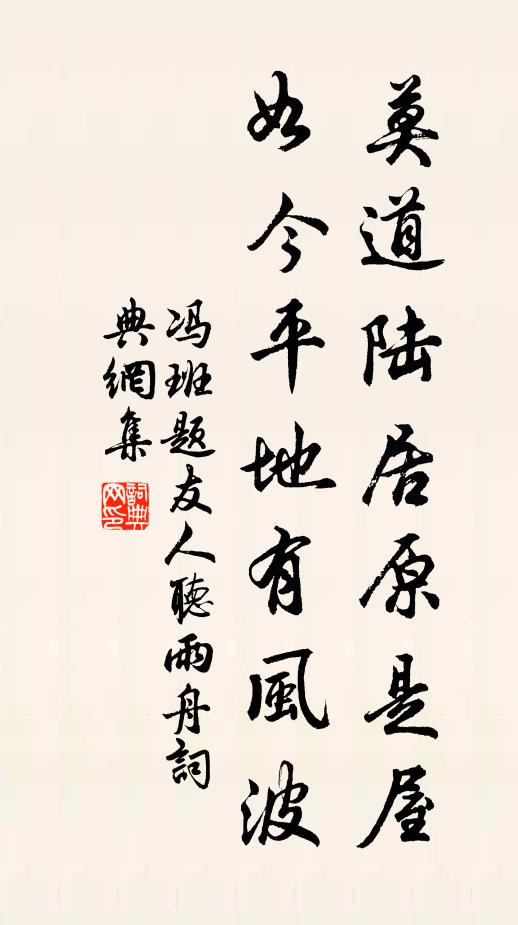 莫道陆居原是屋
如今平地有風波
冯班题友人聽雨舟詞
典網集
詞典
网印